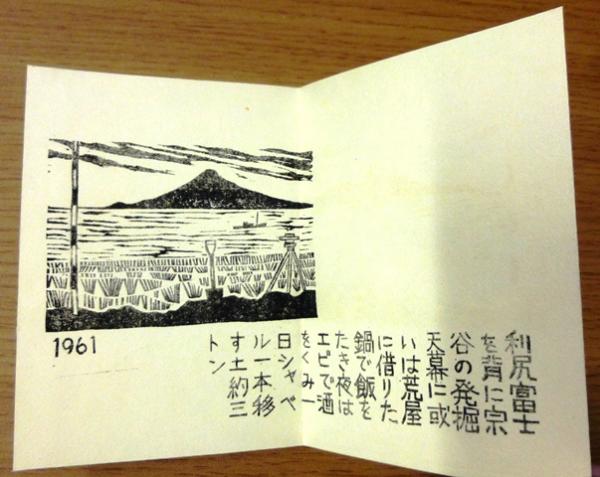 利尻富士
を背に宗
谷の発掘
天幕に或
いは荒屋
に借りた
鍋で飯を
たき夜は
エビで酒
をくみ一
日シャベ
ル一本移
す土約三
トン
1961